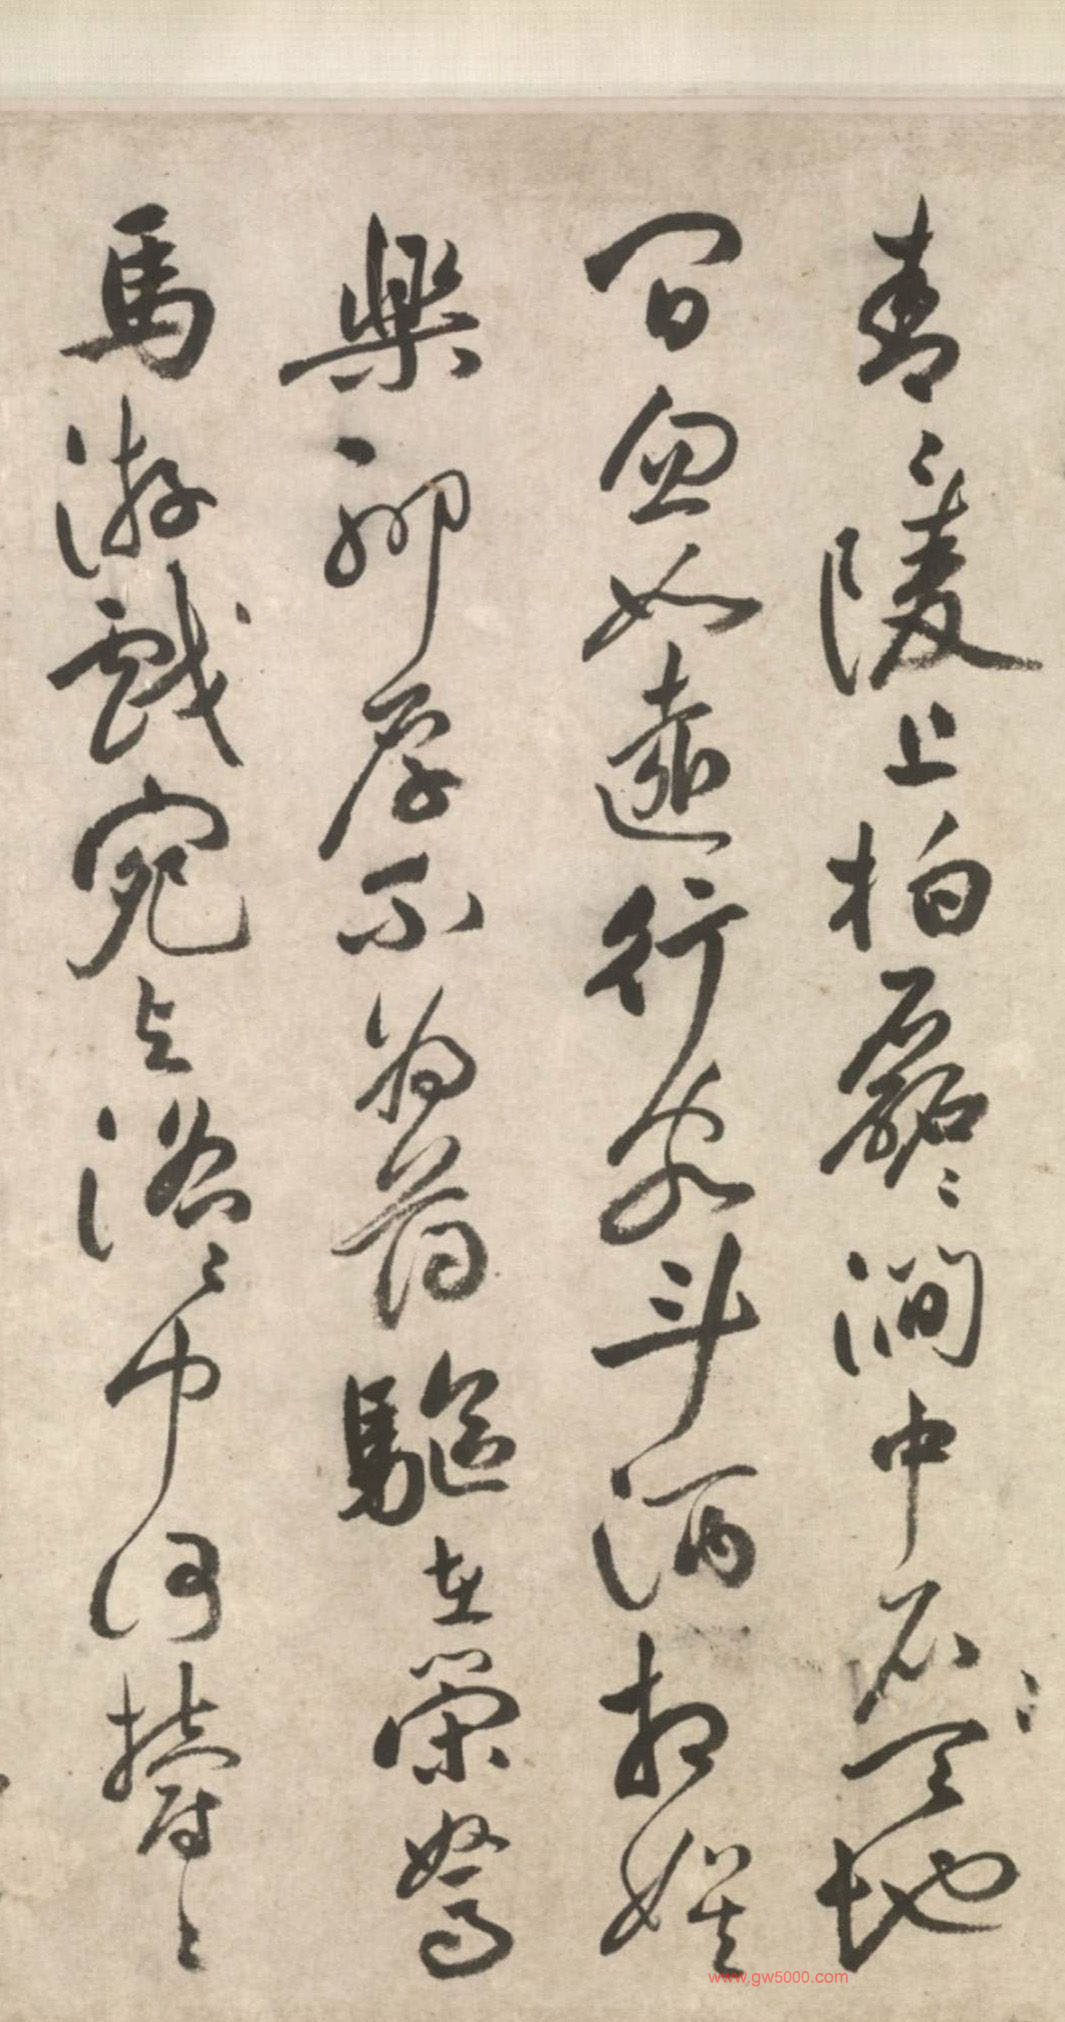 青〻陵上柏磊〻澗中石天地
間忽如遠行客斗酒相娛
樂聊厚不爲薄驅車策駑
馬游戲宛與洛〻中何鬱〻
www.gw5000.com